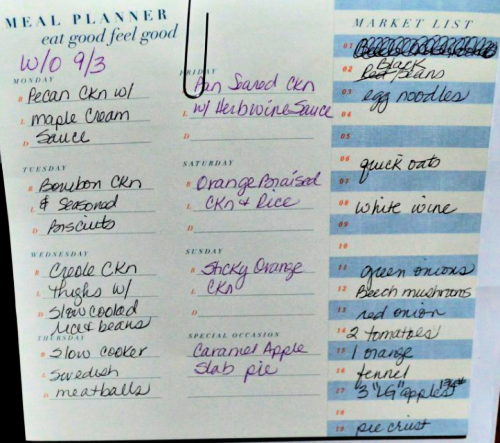 MEAL PLANNER
eat good feel good
W/O 9/3
MONDAY
B Pecan Ckn w/
L maple Cream
D Sauce
TUESDAY
B Bourbon Ckn
L & Seasoned
D Biscuits
WEDNESDAY
B Creole Ckn
L thighs w/
D Slow cooked
rice & beans
THURSDAY
B Slow cooker
L Swedish
D meatballs
FRIDAY
Pan Seared Ckn
L w/ Herb wine Sauce
D
SATURDAY
B Orange Braised
L Ckn & Rice
D
SUNDAY
B Sticky Orange
L Ckn
D
SPECIAL OCCASION
Caramel Apple
Slab pie
MARKET LIST
01
Black
02 Red beans
03 egg noodles
04
05
06 quick oats
07
08 white wine
09
10
11 green onions
12 Beech mushrooms
13 red onion
14 2 tomatoes
15 1 orange
16 fennel
17 3 "LG" apples
18
19 pie crust